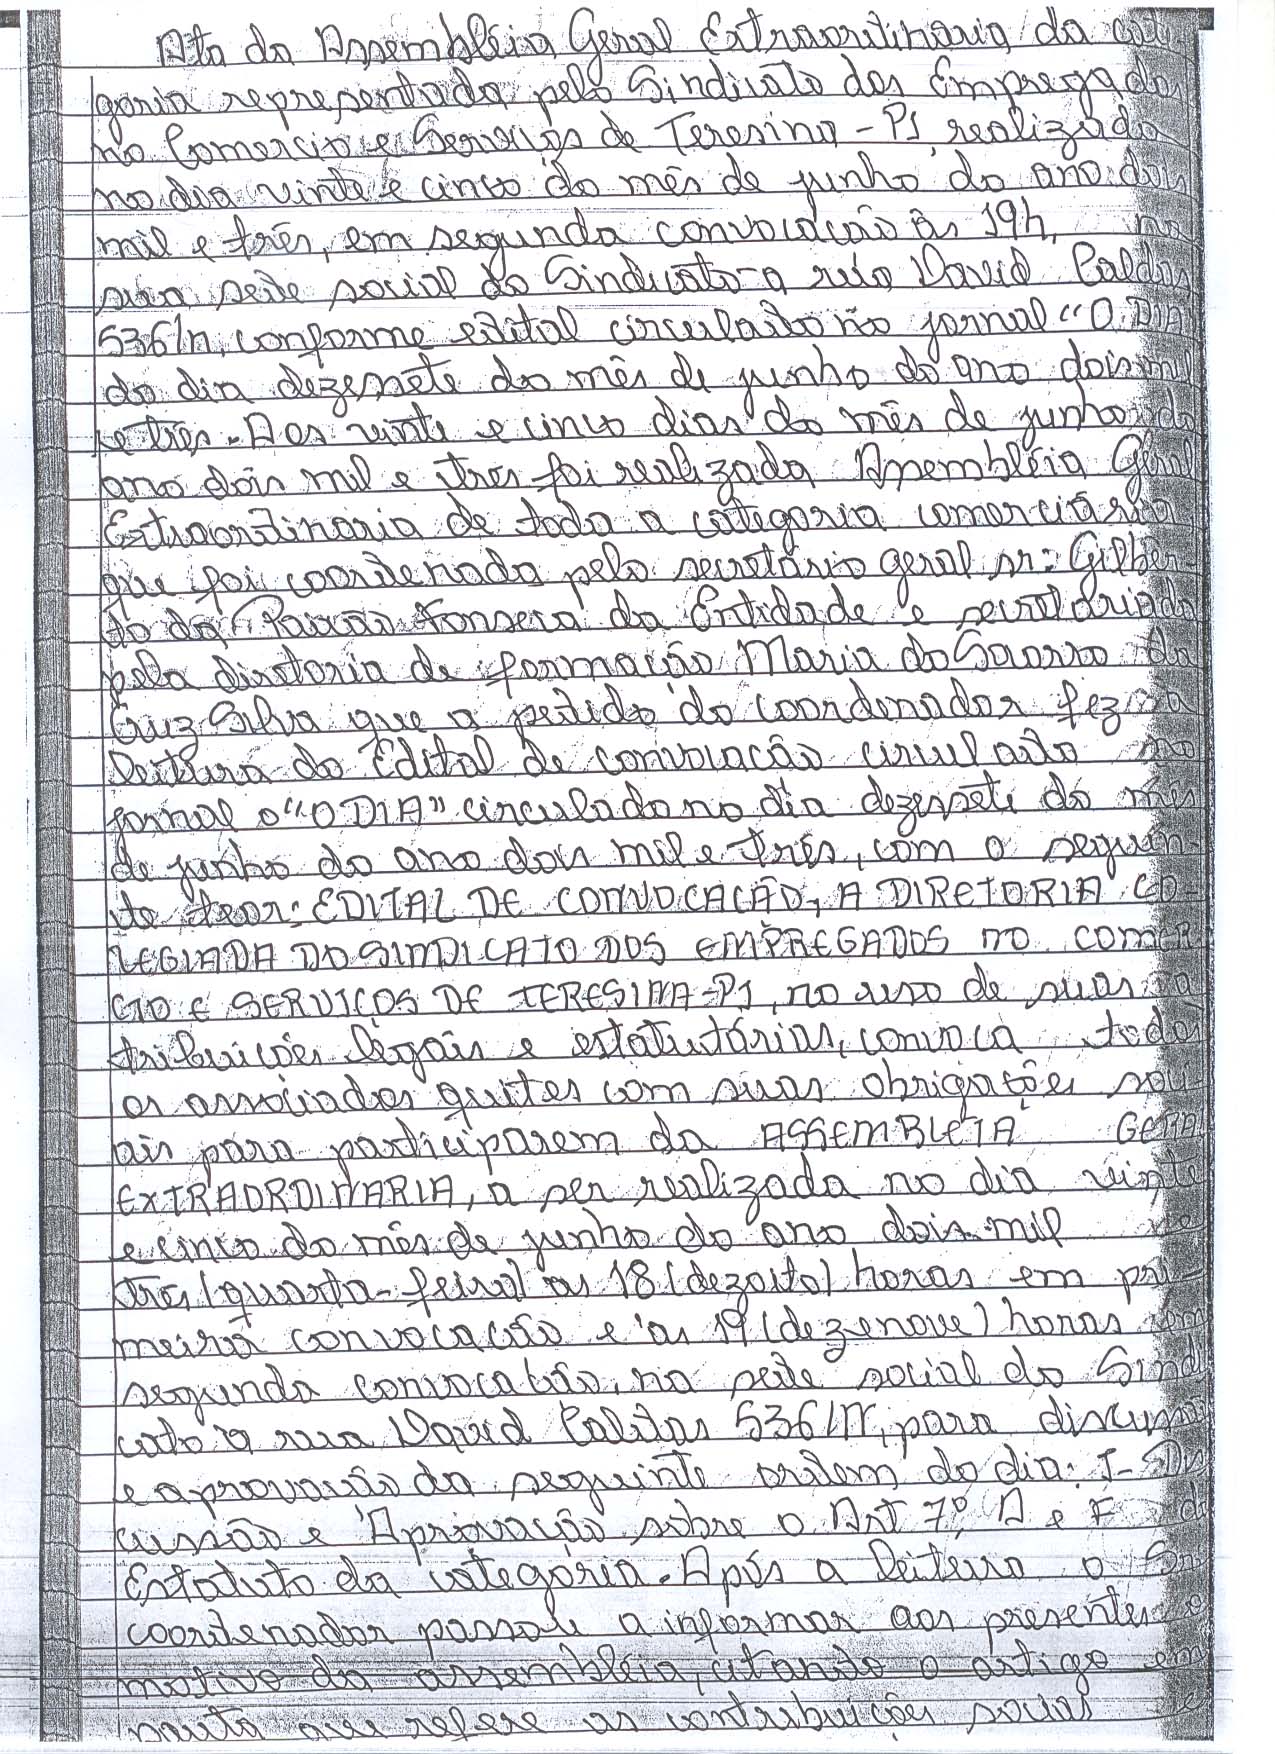 Ata da Assembléia Geral Extraordinária da cate
goria representada pelo Sindicato dos Empregados
no Comercio e Serviços de Teresina - PI, realizada
no dia vinte e cinco do mês de junho do ano dois
mil e três, em segunda convocação às 19h, na
sua sede social do Sindicato a rua David Caldas
536/n, conforme edital circulado no jornal "O DIA
do dia dezessete do mês de junho do ano dois mil
e três. Aos vinte e cinco dias do mês de junho do
ano dois mil e três foi realizada Assembléia Geral
Extraordinaria de toda a categoria comerciária
que foi coordenada pelo secretário geral sr: Gilber-
to da Paixão Fonseca da Entidade e secretariada
pela diretoria de formação Maria do Socorro da
Cruz Silva que a pedido do coordenador fez a
leitura do Edital de convocação circulado no
jornal o "O DIA" circulado no dia dezessete do mês
de junho do ano dois mil e três, com o seguin-
te teor: EDITAL DE CONVOCAÇÃO, A DIRETORIA CO-
LEGIADA DO SINDICATO DOS EMPREGADOS NO COMER
CIO E SERVIÇOS DE TERESINA-PI, no uso de suas a
tribuições legais e estatutárias, convoca todos
os associados quites com suas obrigações soci
ais para participarem da ASSEMBLEIA GERAL
EXTRAORDINARIA, a ser realizada no dia vinte
e cinco do mês de junho do ano dois mil e
três (quarta-feira) as 18 (dezoito) horas em pri-
meira convocação e às 19 (dezenove) horas em
segunda convocação, na sede social do Sindi
cato a rua David Caldas 536/N, para discussão
e aprovação da seguinte ordem do dia: I- Dis
cussão e Aprovação sobre o Art 7º, A e F do
Estatuto da categoria. Após a leitura o Sr
coordenador passou a informar aos presentes o
motivo da assembléia, citando o artigo em
pauta que refere as contribuições sociais e